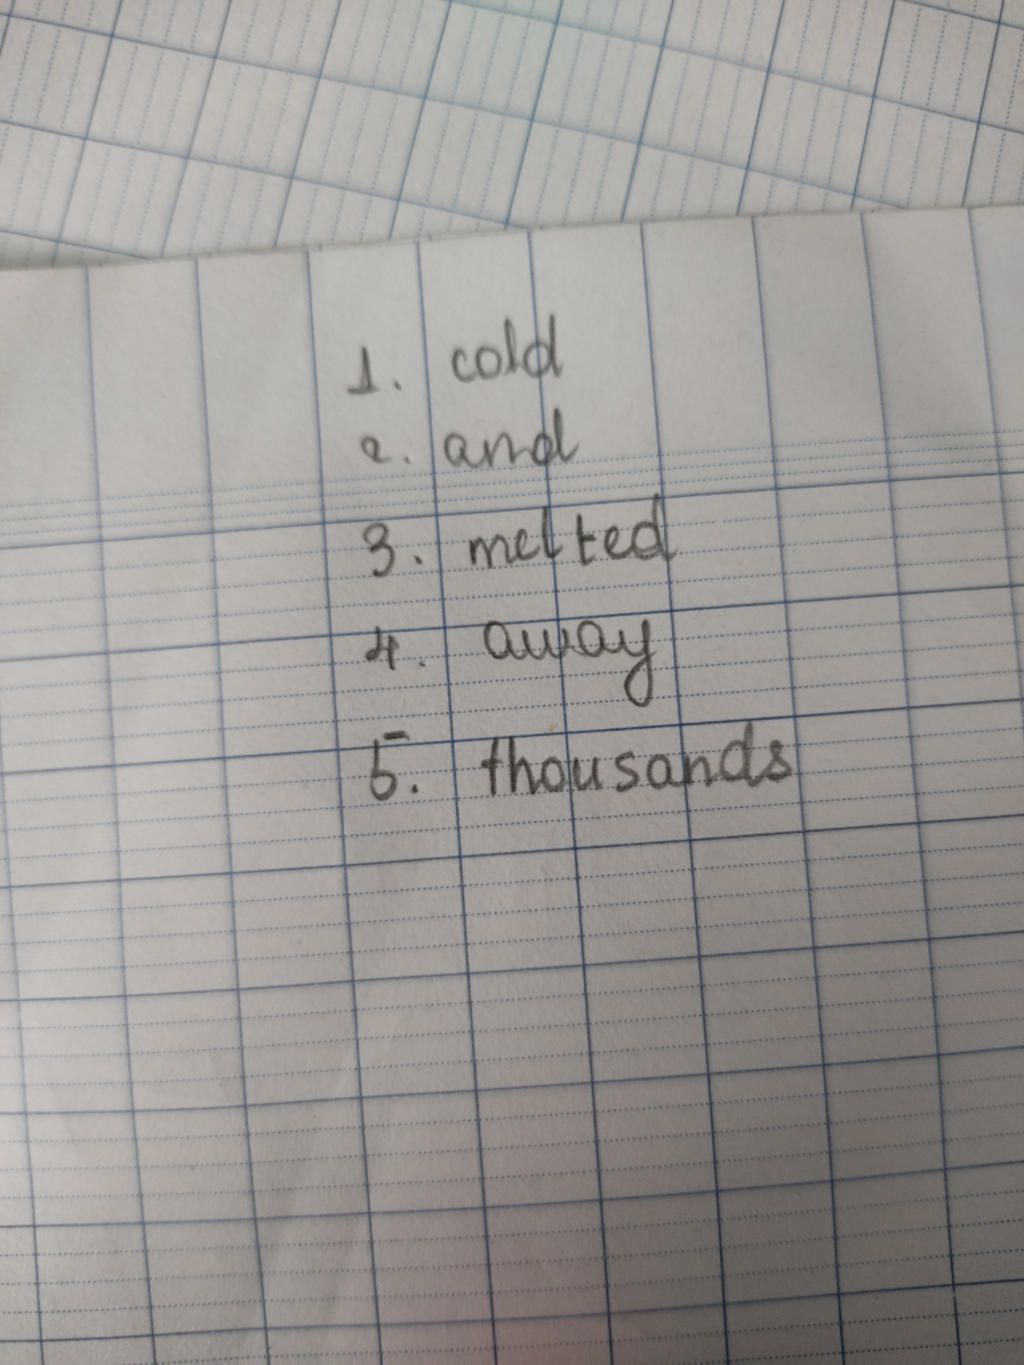 1. cold
2. and
3. melted
4. away
5. thousands